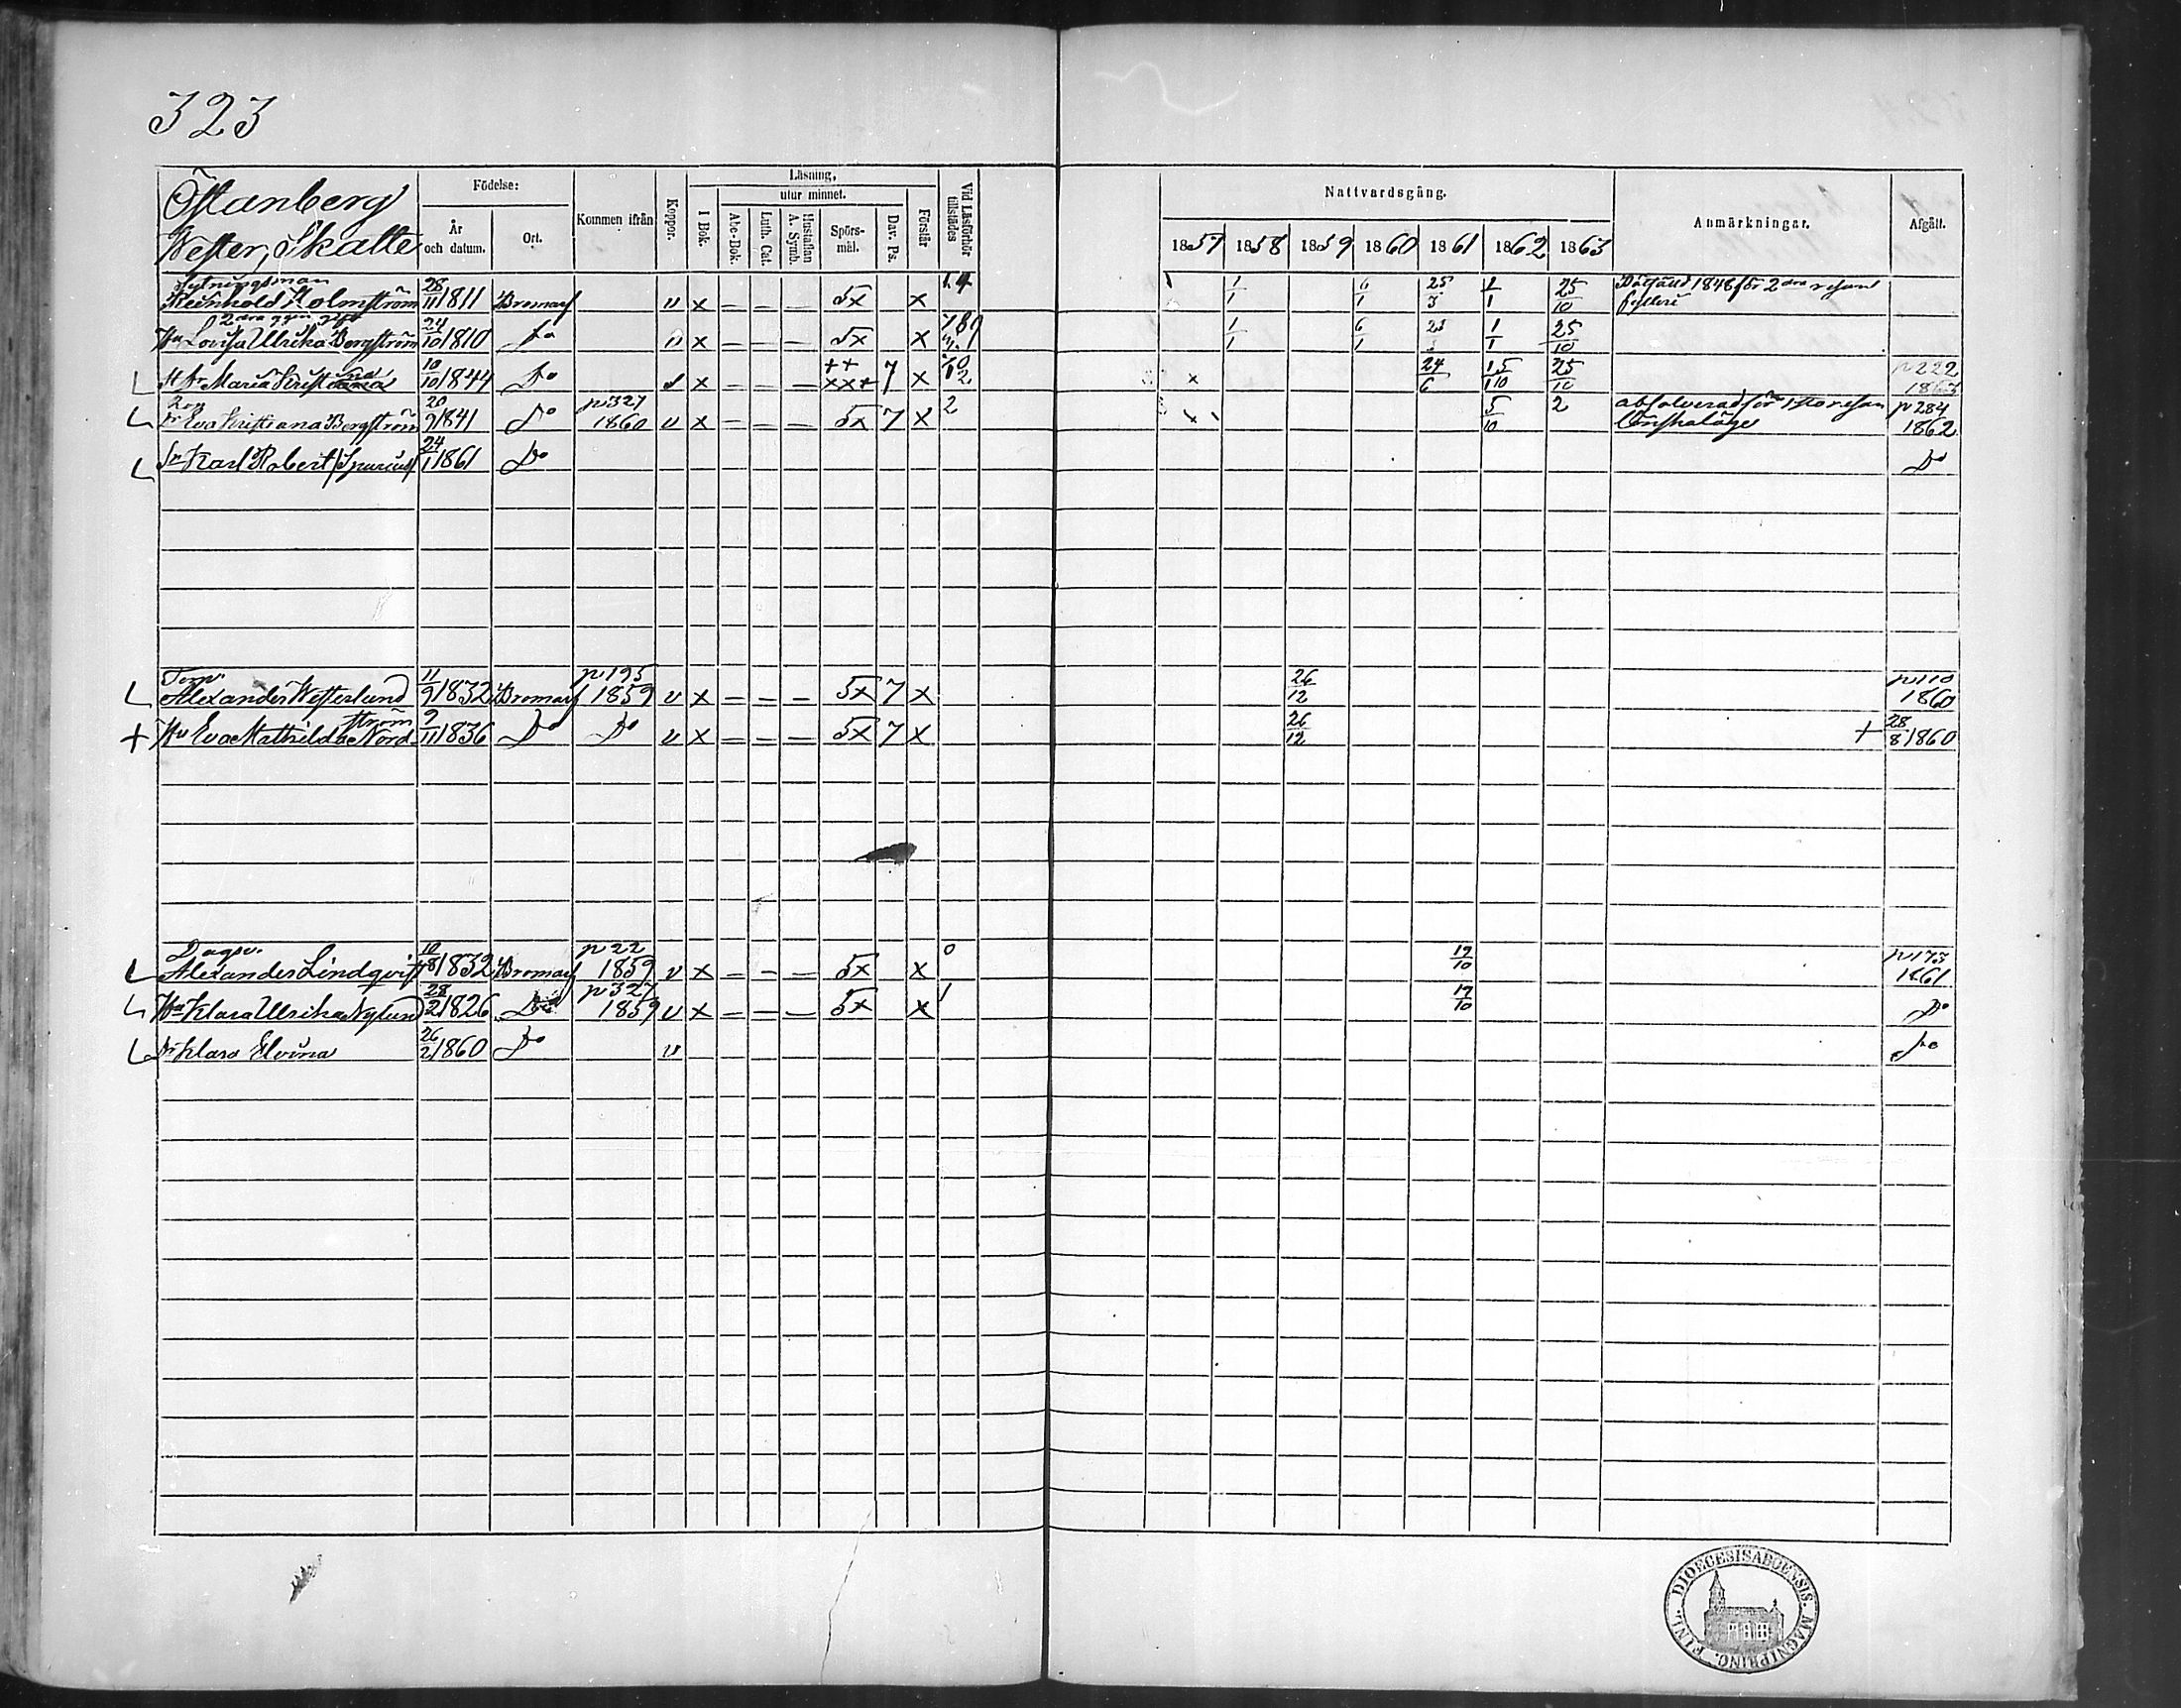 323
Östanberg
Wester, Skatte
Födelse:
År och datum.
Ort.
Kommen ifrån
Koppor.
Läsning,
I Bok.
utur minnet.
Abc-Bok.
Luth. Cat.
Hustaflan A. Symb.
Spörs-mål.
Dav. Ps.
Förstår
Vid Läsförhör tillstädes
Nattvardsgång.
1857 1858 1859 1860 1861 1862 1863
Anmärkningar.
Afgått.
Sytningsman
Reinhold Holmström 28/11 1811 Bromarf v x – – – 5x x 1/1 6/1 25/3 1/1 25/10 1848 för 2dra resan
fylleri
2dra ggn gift
Hu Lovisa Ulrika Bergström 24/10 1810 Do v x – – – 5x x 1/1 6/1 1/1 25/10
Maria Kristina 10/10 1844 Do v x – – – ++ xxx 7 x x 24/6 25/10 p 222
Dr Eva Kristiana Bergström 20/9 1841 Do p 327 1860 v x – – – 5x 7 x 2 5/10 2 absolverad för 1sta resan
lönskaläge p 284 1862
Sn Karl Robert (Spurius) 24/1 1861 Do Do
Torp.
Alexander Westerlund 11/9 1832 Bromarf p 195 1859 v x – – – 5x 7 x 26/12 p 110 1860
Hu Eva Mathilda Nordström 9/11 1836 Do Do v x – – – 5x 7 x 26/12 + 28/8 1860
Dagsv.
Alexander Lindqvist 10/8 1832 Bromarf p 22 1859 v x – – – 5x x 0 17/10 p 173 1861
Hu Klara Ulrika Nylund 28/2 1826 Do p 327 1859 v x – – – 5x x 1 17/10 Do
Dr Klara Elvina 26/2 1860 Do v Do
FINL. DIOECESIS ABOENSIS. MAGNI PRINC.